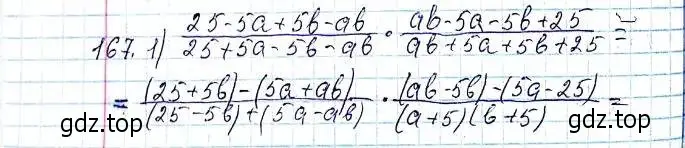 167. 1) (25-5a+5b-ab)/(25+5a-5b-ab) · (ab-5a-5b+25)/(ab+5a+5b+25) =
= ((25+5b)-(5a+ab))/((25-5b)+(5a-ab)) · ((ab-5b)-(5a-25))/((a+5)(b+5)) =
gdz.top gdz.top gdz.top